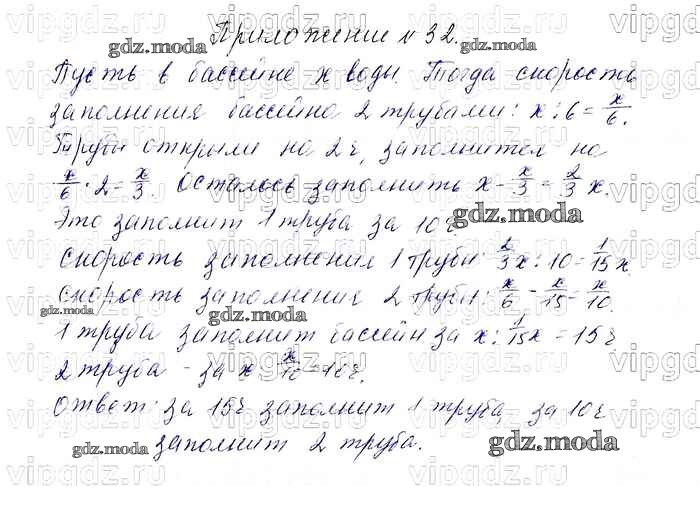 Приложение № 32.
Пусть в бассейне x воды. Тогда скорость
заполнения бассейна 2 трубами: x : 6 = x/6.
Трубы открыли на 2 ч, заполнится на
x/6 · 2 = x/3. Осталось заполнить x - x/3 = 2/3 x.
Это заполнит 1 труба за 10 ч.
Скорость заполнения 1 трубы: 2/3 x : 10 = 1/15 x.
Скорость заполнения 2 трубы: x/6 - x/15 = x/10.
1 труба заполнит бассейн за x : 1/15 x = 15 ч
2 труба - за x : x/10 = 10 ч.
Ответ: за 15 ч заполнит 1 труба, за 10 ч
заполнит 2 труба.
gdz.moda
gdz.moda
gdz.moda
gdz.moda
gdz.moda
gdz.moda
gdz.moda
gdz.moda
vipgdz.ru